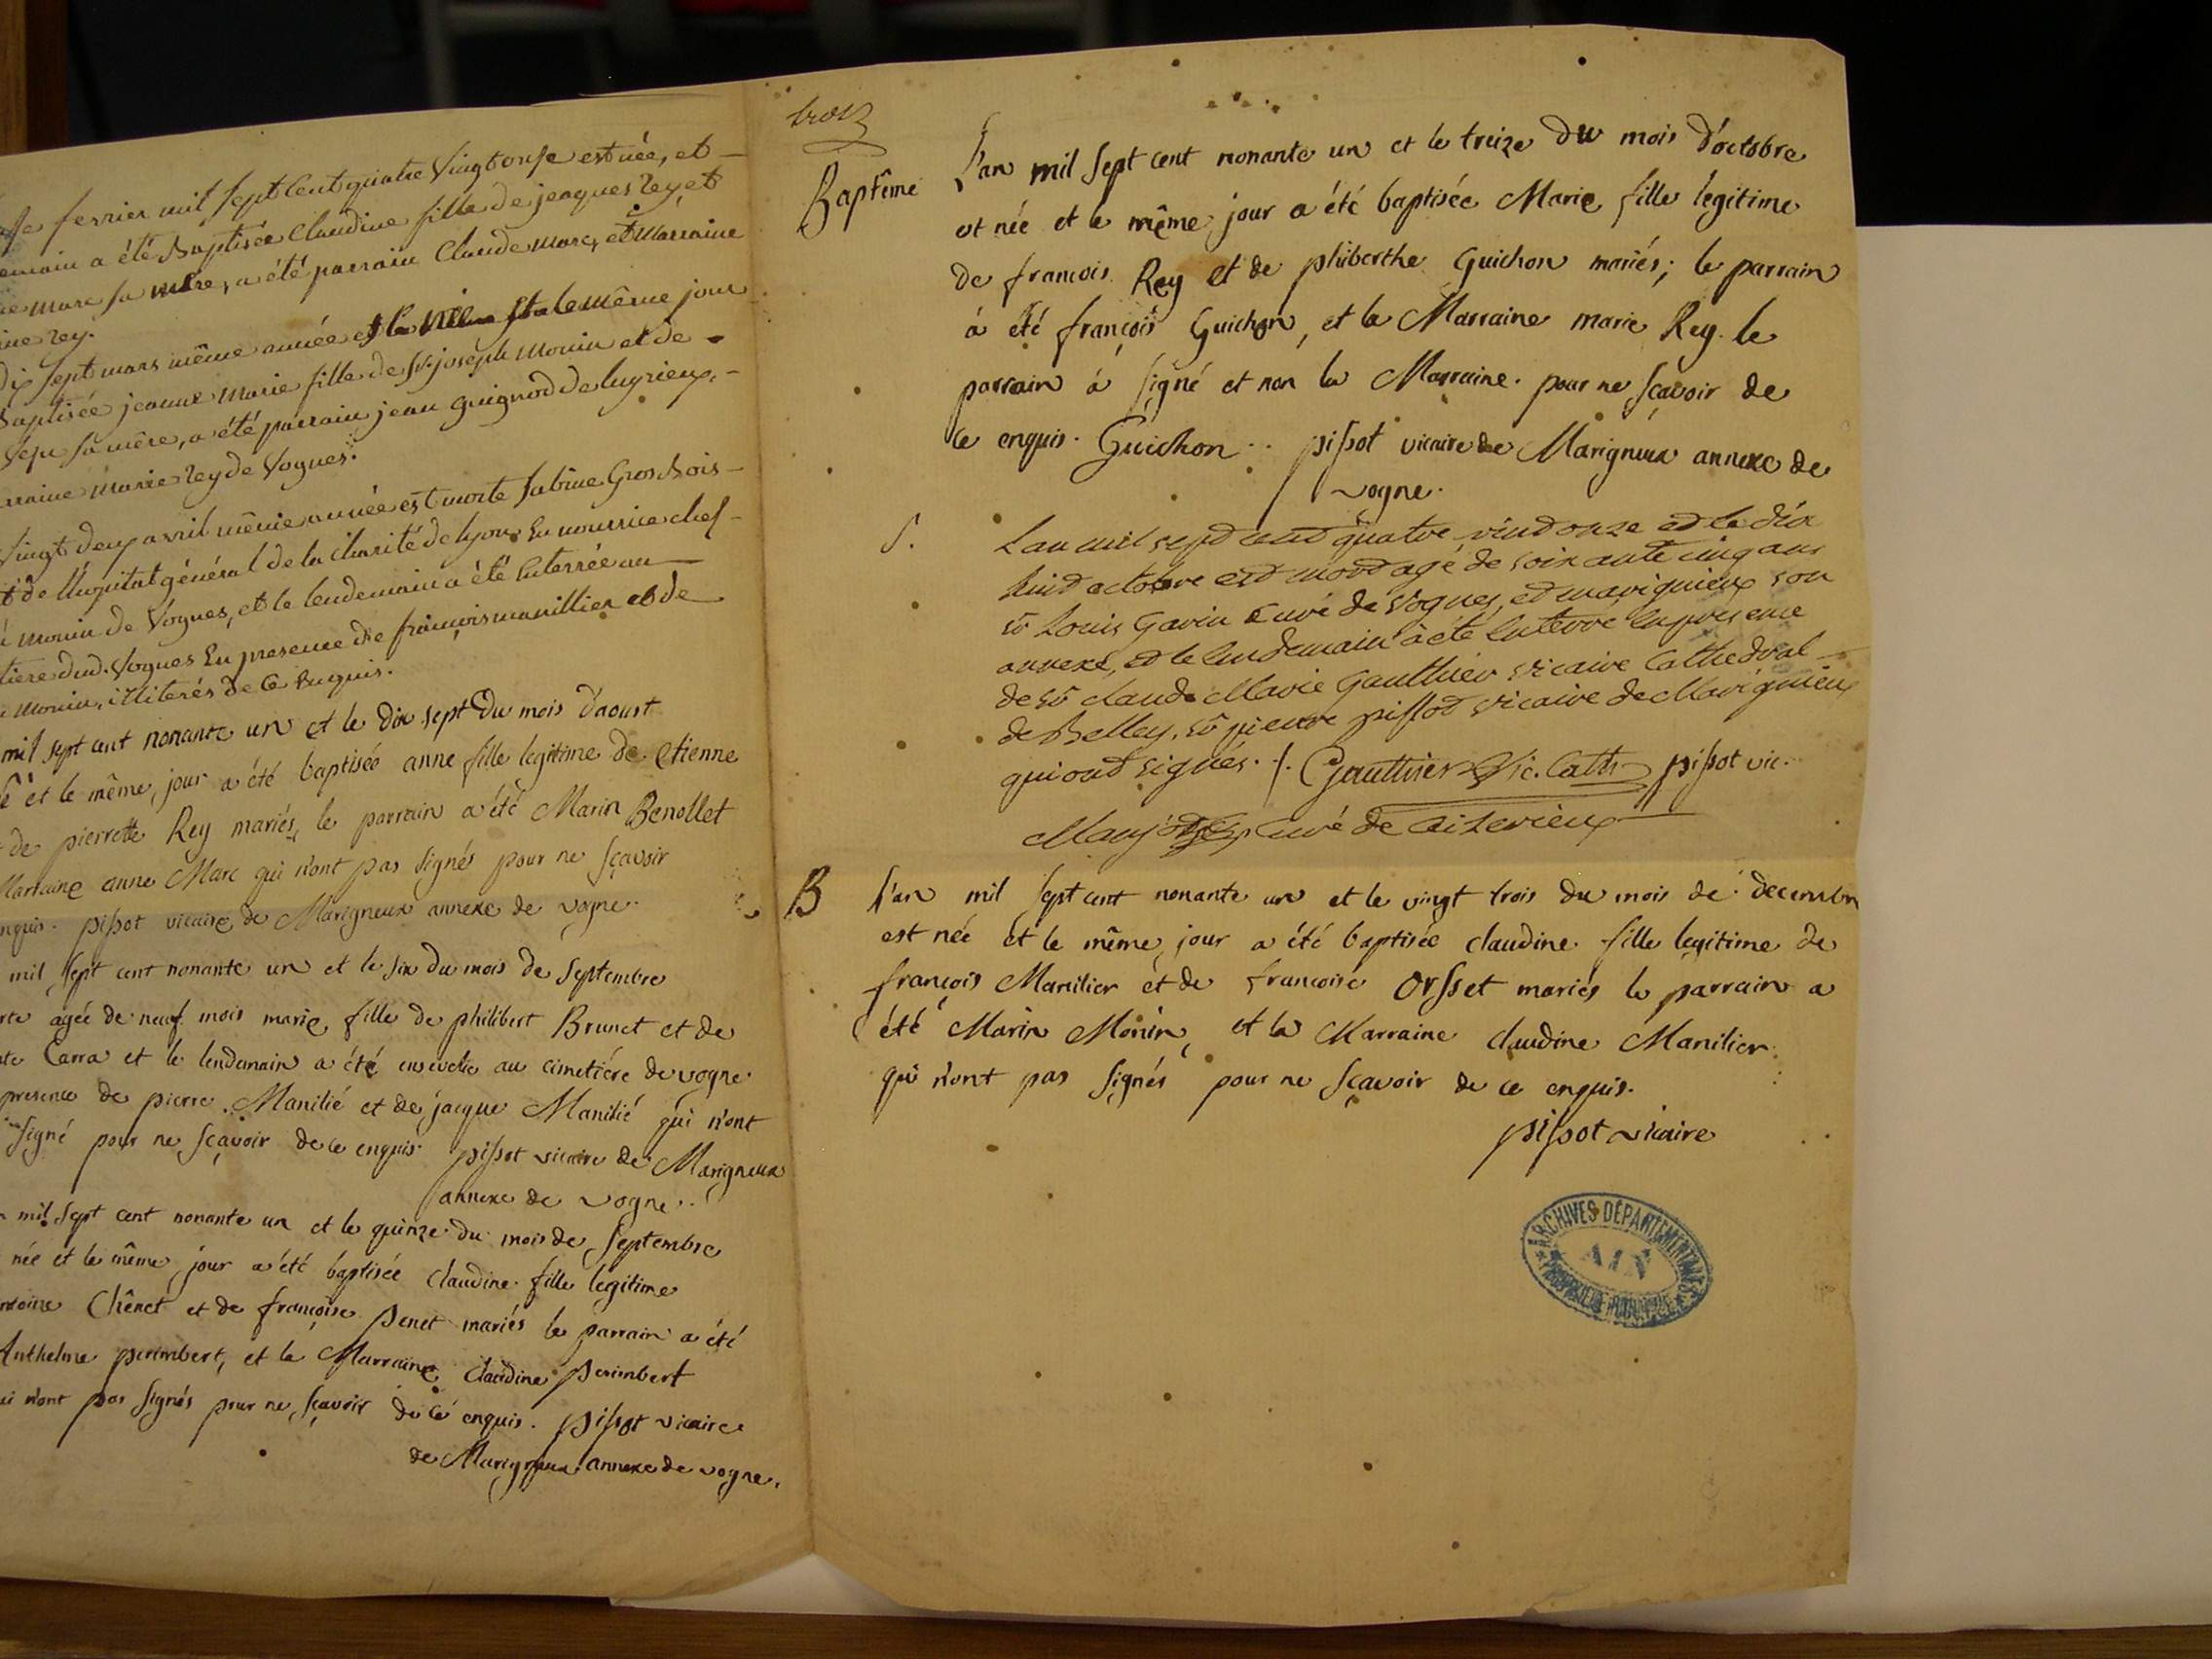 fevrier mil sept cent quatre vingt onse est née, et
a été Baptisée Claudine fille de jacques rey, et
marc sa mère, a été parrain Claude marc, et Marraine
rey.
dix sept mars même année le même jour
Baptisée jeanne marie fille de Sr. joseph Monin et de
sa mère, a été parrain jean guignod de lugrieux,
marie rey de Vognes.
vingt deux avril même année est morte Sabine Grosbois
de l'hopital général de la charité de lyon en nourrice chés
monin de Vognes, et le lendemain a été enterrée au
dud. Vognes En presence de françois manillier et de
monin, illiterés de ce Enquis.
mil sept cent nonante un et le dix sept Du mois d'aoust
et le même jour a été baptisée anne fille legitime de etienne
de pierrette Rey mariés, le parrain a été Marin Benollet
Marraine anne Marc qui n'ont pas signés pour ne sçavoir
enquis. pissot vicaire de Marigneux annexe de vogne.
mil sept cent nonante un et le six du mois de septembre
agée de neuf mois marie fille de philibert Brunet et de
Carra et le lendemain a été ensevelie au cimetiére de vogne
presence de pierre Manilié et de jacque Manilié qui n'ont
signé pour ne sçavoir de ce enquis. pissot vicaire de Marigneux
annexe de vogne.
mil sept cent nonante un et le quinze du mois de septembre
née et le même jour a été baptisée claudine fille legitime
Chênet et de françoise penet mariés le parrain a été
Anthelme perimbert, et la Marraine claudine perimbert
n'ont pas signés pour ne sçavoir de ce enquis. pissot vicaire
de Marigneux annexe de vogne.
trois
Baptême
L'an mil sept cent nonante un et le treize du mois d'octobre
est née et le même jour a été baptisée Marie fille legitime
de francois Rey et de phiberthe Guichon mariés; le parrain
à été françois Guichon, et la Marraine marie Rey. le
parrain à signé et non la Marraine. pour ne sçavoir de
ce enquis. Guichon.. pissot vicaire de Marigneux annexe de
vogne.
S.
L'an mil sept cent quatre vint onze et le dix
huit octobre est mort agé de soixante cinq ans
sr Louis Gavin Curé de Vognes, et marignieux son
annexe, et le lendemain à été Enterré En presence
de sr claude Marie Gauthier Vicaire Cathedral
de Belley, sr pierre pissot vicaire de Marignieux
qui ont signés. Gauthier Vic. Cath. pissot vic.
curé de Ceizerieux
B
L'an mil sept cent nonante un et le vingt trois du mois de decembre
est née et le même jour a été baptisée claudine fille legitime de
françois Manilier et de francoise Orsset mariés le parrain a
été Marin Monin, et la Marraine claudine Manilier
qui n'ont pas signés pour ne sçavoir de ce enquis.
pissot vicaire
ARCHIVES DÉPARTEMENTALES
AIN
PROPRIÉTÉ PUBLIQUE